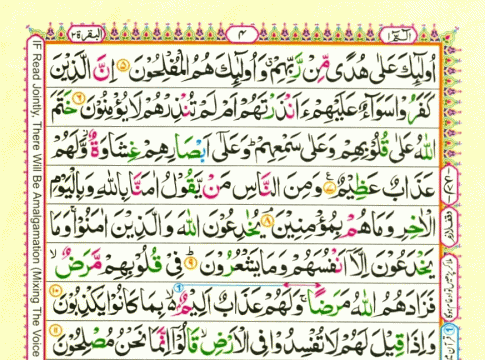 البقرة ٢
٤
الٓمّٓ ١
اُولٰٓئِكَ عَلٰى هُدًى مِّنْ رَّبِّهِمْ ۗ وَاُولٰٓئِكَ هُمُ الْمُفْلِحُوْنَ ۝٥ اِنَّ الَّذِيْنَ
كَفَرُوْا سَوَآءٌ عَلَيْهِمْ ءَاَنْذَرْتَهُمْ اَمْ لَمْ تُنْذِرْهُمْ لَا يُؤْمِنُوْنَ ۝٦ خَتَمَ
اللّٰهُ عَلٰى قُلُوْبِهِمْ وَعَلٰى سَمْعِهِمْ ؕ وَعَلٰٓى اَبْصَارِهِمْ غِشَاوَةٌ ز وَّلَهُمْ
عَذَابٌ عَظِيْمٌ ۝٧ وَمِنَ النَّاسِ مَنْ يَّقُوْلُ اٰمَنَّا بِاللّٰهِ وَبِالْيَوْمِ
الْاٰخِرِ وَمَا هُمْ بِمُؤْمِنِيْنَ ۝٨ يُخٰدِعُوْنَ اللّٰهَ وَالَّذِيْنَ اٰمَنُوْا ۚ وَمَا
يَخْدَعُوْنَ اِلَّاۤ اَنْفُسَهُمْ وَمَا يَشْعُرُوْنَ ۝٩ فِيْ قُلُوْبِهِمْ مَّرَضٌ ۙ
فَزَادَهُمُ اللّٰهُ مَرَضًا ۚ وَلَهُمْ عَذَابٌ اَلِيْمٌۢ ۙ بِمَا كَانُوْا يَكْذِبُوْنَ ۝١٠
وَاِذَا قِيْلَ لَهُمْ لَا تُفْسِدُوْا فِي الْاَرْضِ ۙ قَالُوْۤا اِنَّمَا نَحْنُ مُصْلِحُوْنَ ۝١١
IF Read Jointly, There Will Be Amalgamation (Mixing The Voice